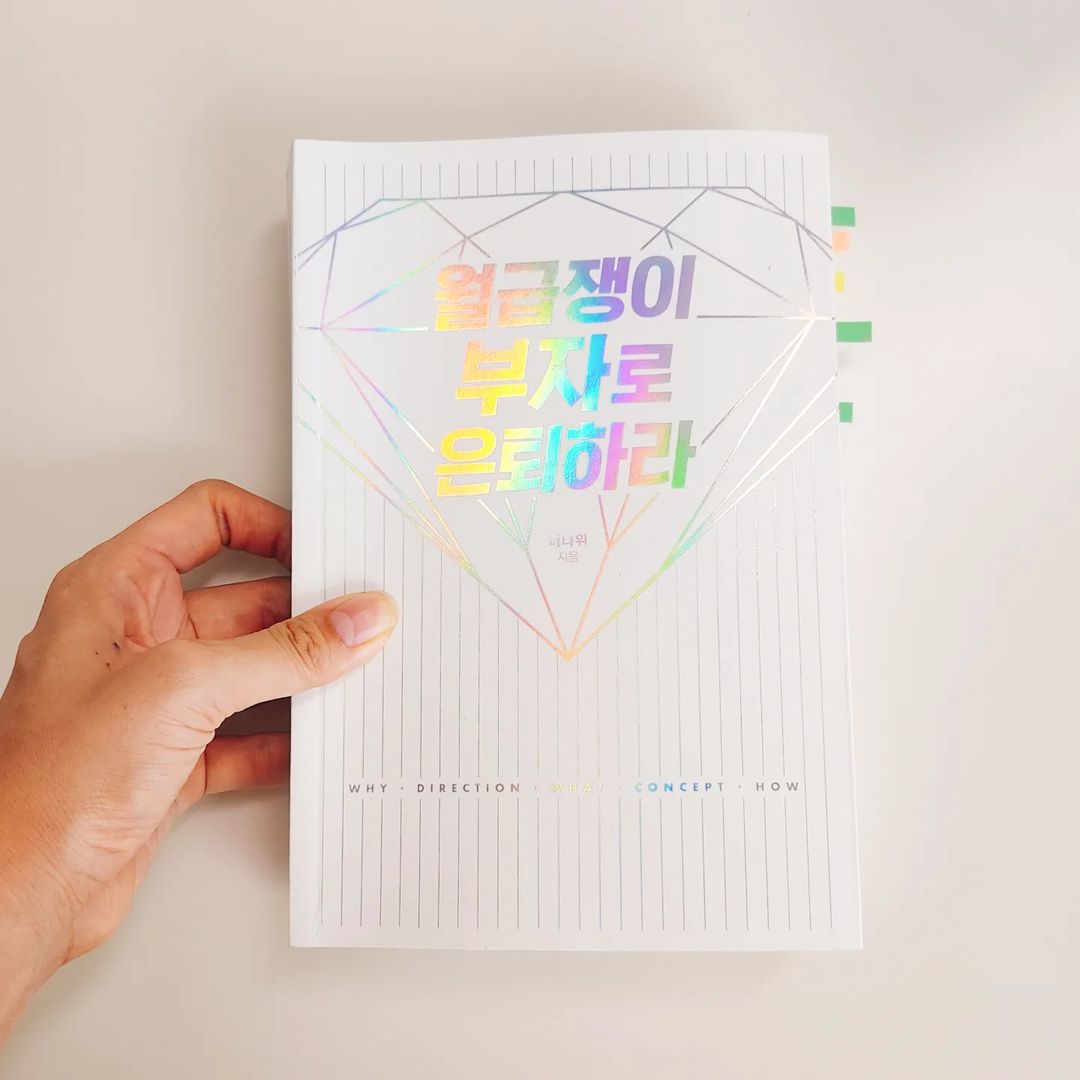 월급쟁이
부자로
은퇴하라
너나위
지음
WHY · DIRECTiON · WHAT · CONCEPT · HOW